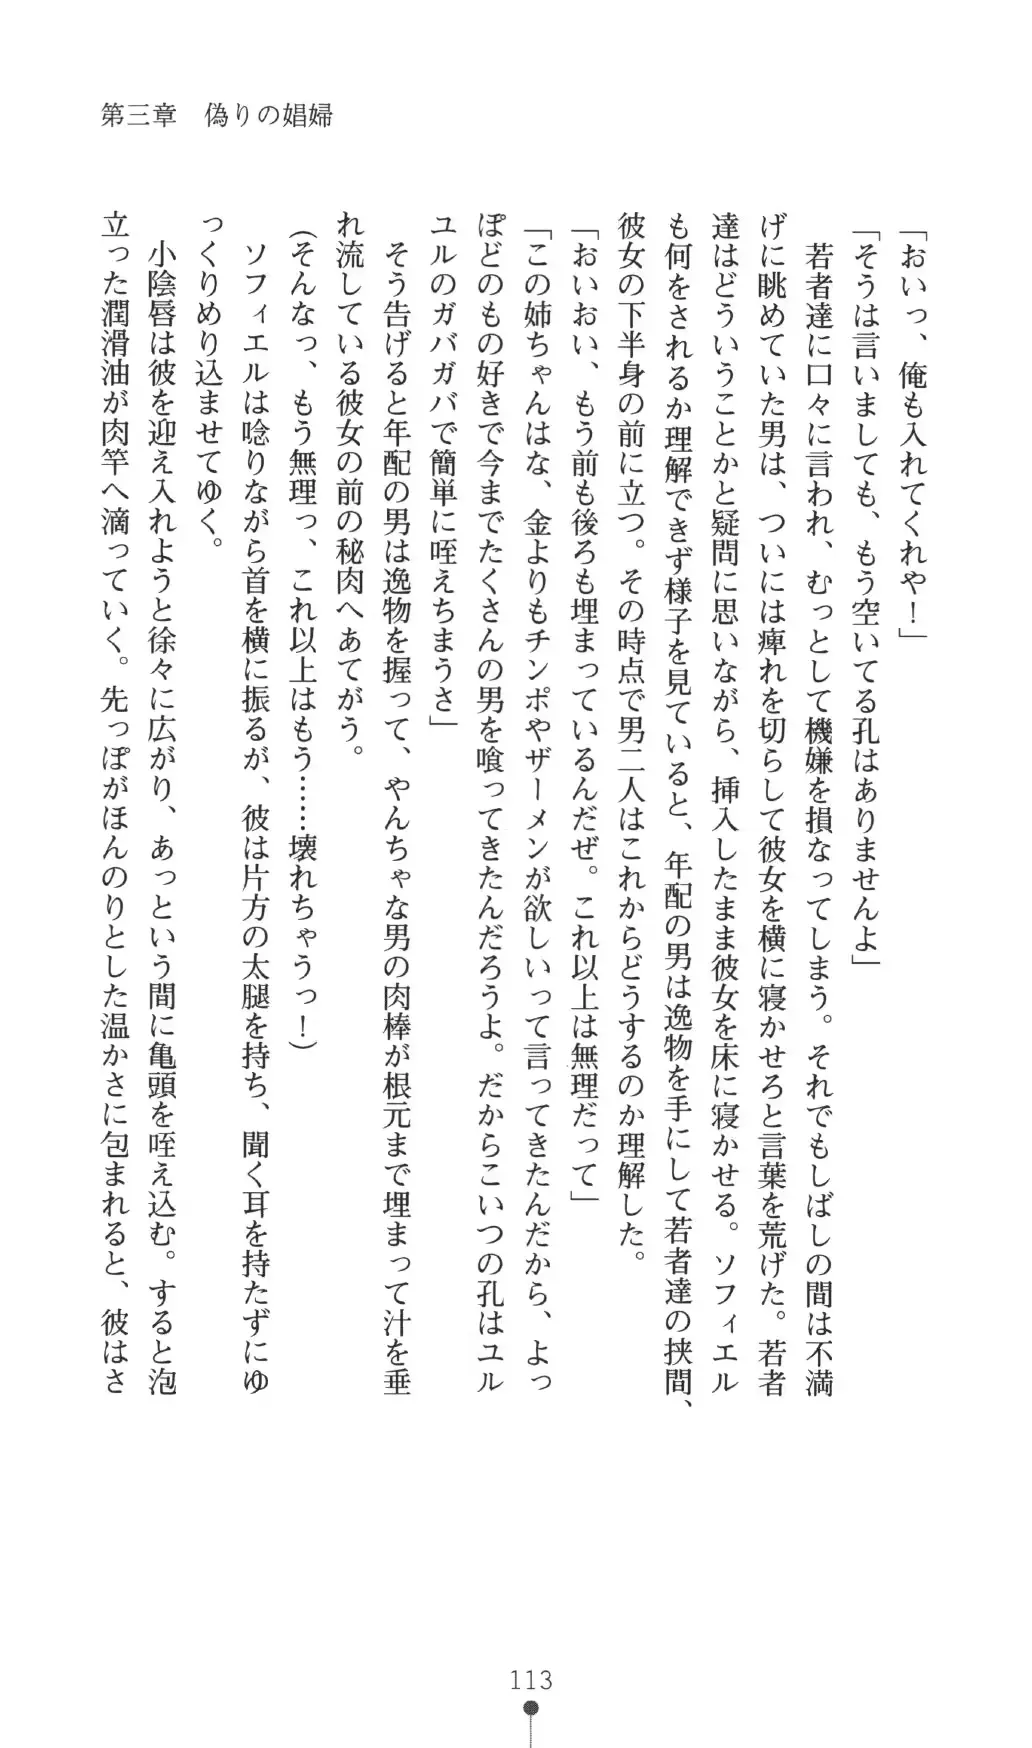 第三章　偽りの娼婦
「おいっ、俺も入れてくれや！」
「そうは言いましても、もう空いてる孔はありませんよ」
　若者達に口々に言われ、むっとして機嫌を損なってしまう。それでもしばしの間は不満
げに眺めていた男は、ついには痺れを切らして彼女を横に寝かせろと言葉を荒げた。若者
達はどういうことかと疑問に思いながら、挿入したまま彼女を床に寝かせる。ソフィエル
も何をされるか理解できず様子を見ていると、年配の男は逸物を手にして若者達の挟間、
彼女の下半身の前に立つ。その時点で男二人はこれからどうするのか理解した。
「おいおい、もう前も後ろも埋まっているんだぜ。これ以上は無理だって」
「この姉ちゃんはな、金よりもチンポやザーメンが欲しいって言ってきたんだから、よっ
ぽどのもの好きで今までたくさんの男を喰ってきたんだろうよ。だからこいつの孔はユル
ユルのガバガバで簡単に咥えちまうさ」
　そう告げると年配の男は逸物を握って、やんちゃな男の肉棒が根元まで埋まって汁を垂
れ流している彼女の前の秘肉へあてがう。
（そんなっ、もう無理っ、これ以上はもう……壊れちゃうっ！）
　ソフィエルは唸りながら首を横に振るが、彼は片方の太腿を持ち、聞く耳を持たずにゆ
っくりめり込ませてゆく。
　小陰唇は彼を迎え入れようと徐々に広がり、あっという間に亀頭を咥え込む。すると泡
立った潤滑油が肉竿へ滴っていく。先っぽがほんのりとした温かさに包まれると、彼はさ
113